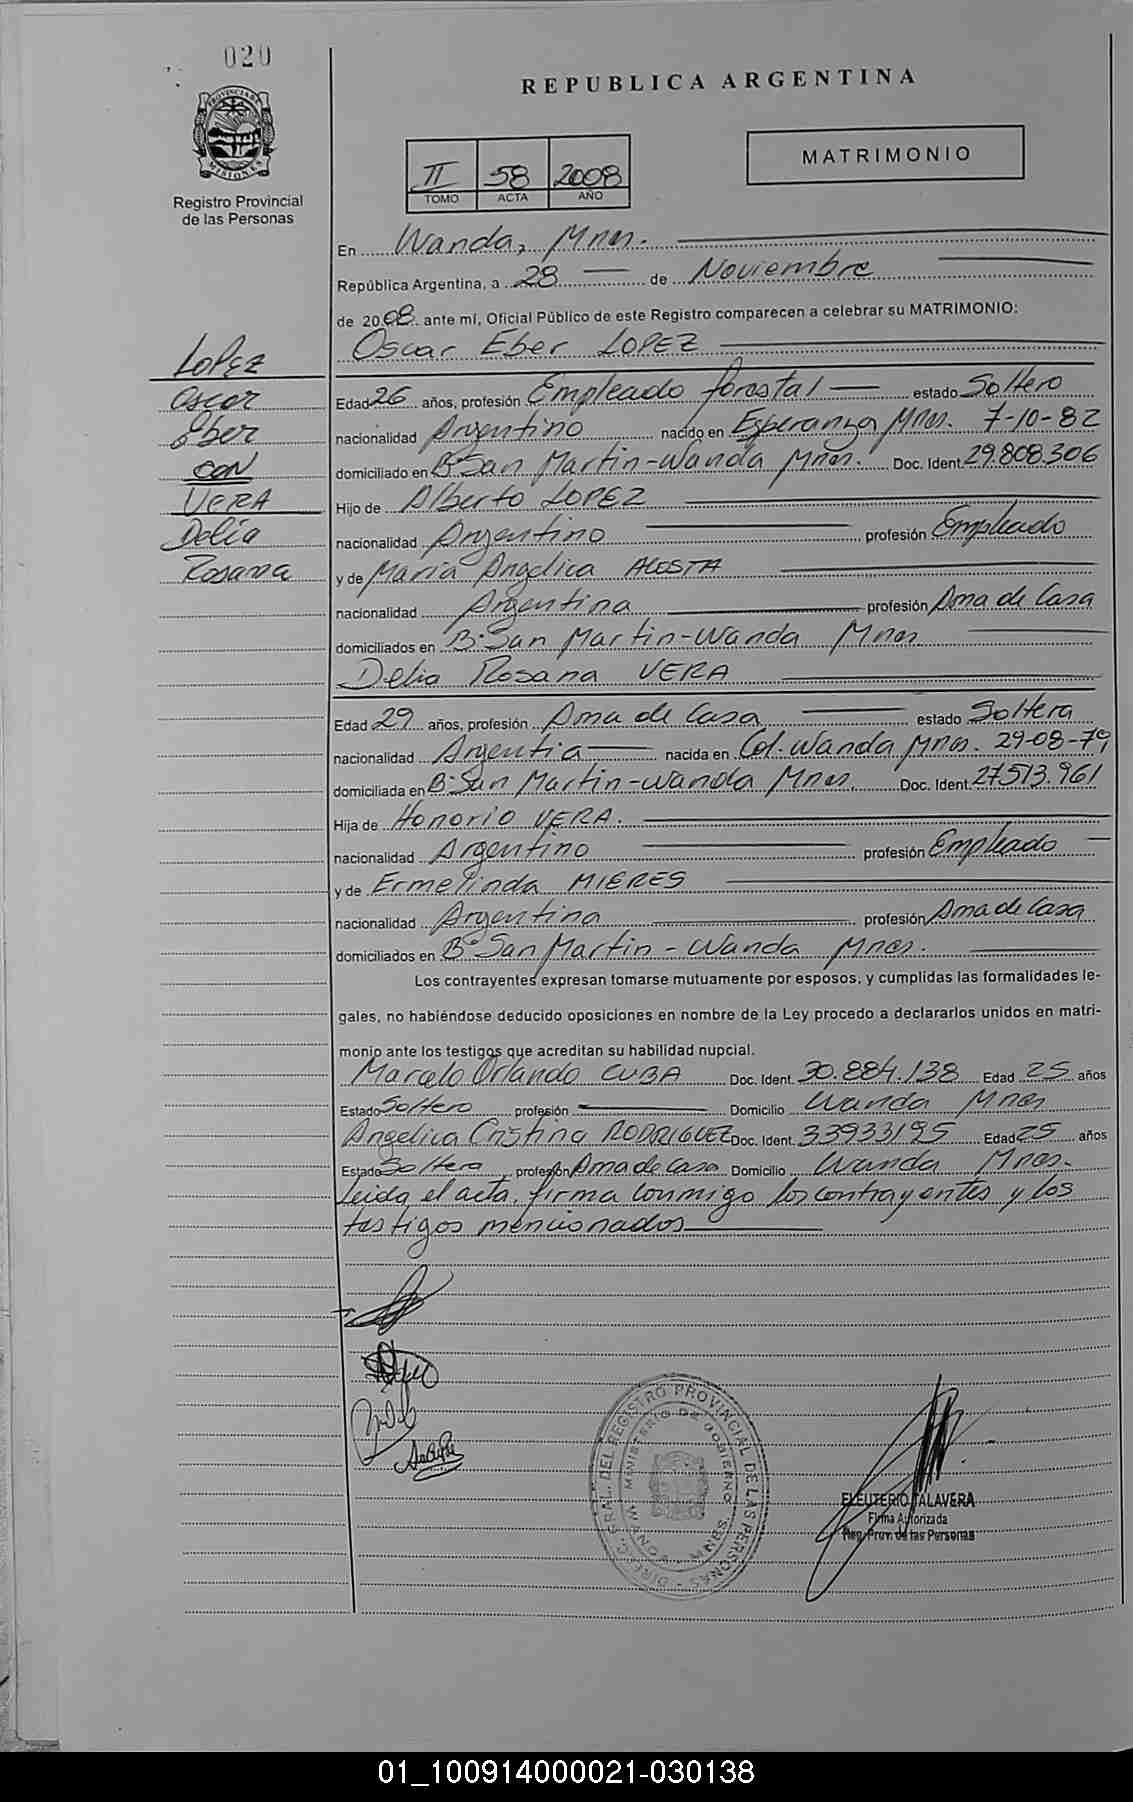 020
REPUBLICA ARGENTINA
PROVINCIA DE MISIONES
Registro Provincial
de las Personas
II 58 2008
TOMO ACTA AÑO
MATRIMONIO
En Wanda, Mnes.
República Argentina, a 28 de Noviembre
de 2008 ante mí, Oficial Público de este Registro comparecen a celebrar su MATRIMONIO:
Lopez
Oscar
Eber
CON
VERA
Delia
Rosana
Oscar Eber LOPEZ
Edad 26 años, profesión Empleado forestal estado Soltero
nacionalidad Argentino nacido en Esperanza Mnes. 7-10-82
domiciliado en Bº San Martin-Wanda Mnes. Doc. Ident. 29.808.306
Hijo de Alberto LOPEZ
nacionalidad Argentino profesión Empleado
y de Maria Angelica ACOSTA
nacionalidad Argentina profesión Ama de Casa
domiciliados en Bº San Martin-Wanda Mnes
Delia Rosana VERA
Edad 29 años, profesión Ama de Casa estado Soltera
nacionalidad Argentia nacida en Col. Wanda Mnes. 29-08-79
domiciliada en Bº San Martin-Wanda Mnes. Doc. Ident. 27.513.961
Hija de Honorio VERA.
nacionalidad Argentino profesión Empleado
y de Ermelinda MIERES
nacionalidad Argentina profesión Ama de Casa
domiciliados en Bº San Martin - Wanda Mnes.
Los contrayentes expresan tomarse mutuamente por esposos, y cumplidas las formalidades le-
gales, no habiéndose deducido oposiciones en nombre de la Ley procedo a declararlos unidos en matri-
monio ante los testigos que acreditan su habilidad nupcial.
Marcelo Orlando CUBA Doc. Ident. 30.884.138 Edad 25 años
Estado Soltero profesión Domicilio Wanda Mnes
Angelica Cristina RODRIGUEZ Doc. Ident. 33933195 Edad 25 años
Estado Soltera profesión Ama de Casa Domicilio Wanda Mnes.
leida el acta, firma conmigo los contrayentes y los
testigos mencionados
DIREC. GRAL. DEL REGISTRO PROVINCIAL DE LAS PERSONAS
MINISTERIO DE GOBIERNO
ELEUTERIO TALAVERA
Firma Autorizada
Reg. Prov. de las Personas
01_100914000021-030138